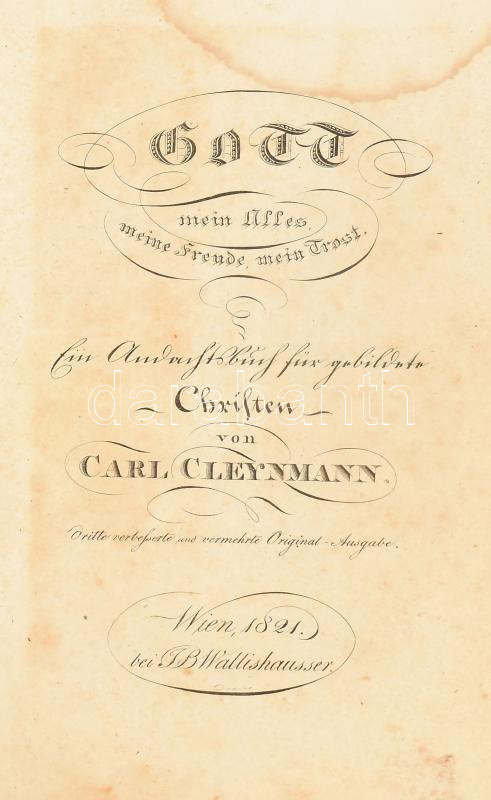 GOTT
mein Alles,
meine Freude, mein Trost.
Ein Andachtsbuch für gebildete
darabanth
Christen
von
CARL CLEYNMANN.
Dritte verbesserte und vermehrte Original-Ausgabe.
Wien, 1821.
bei J B Wallishausser.